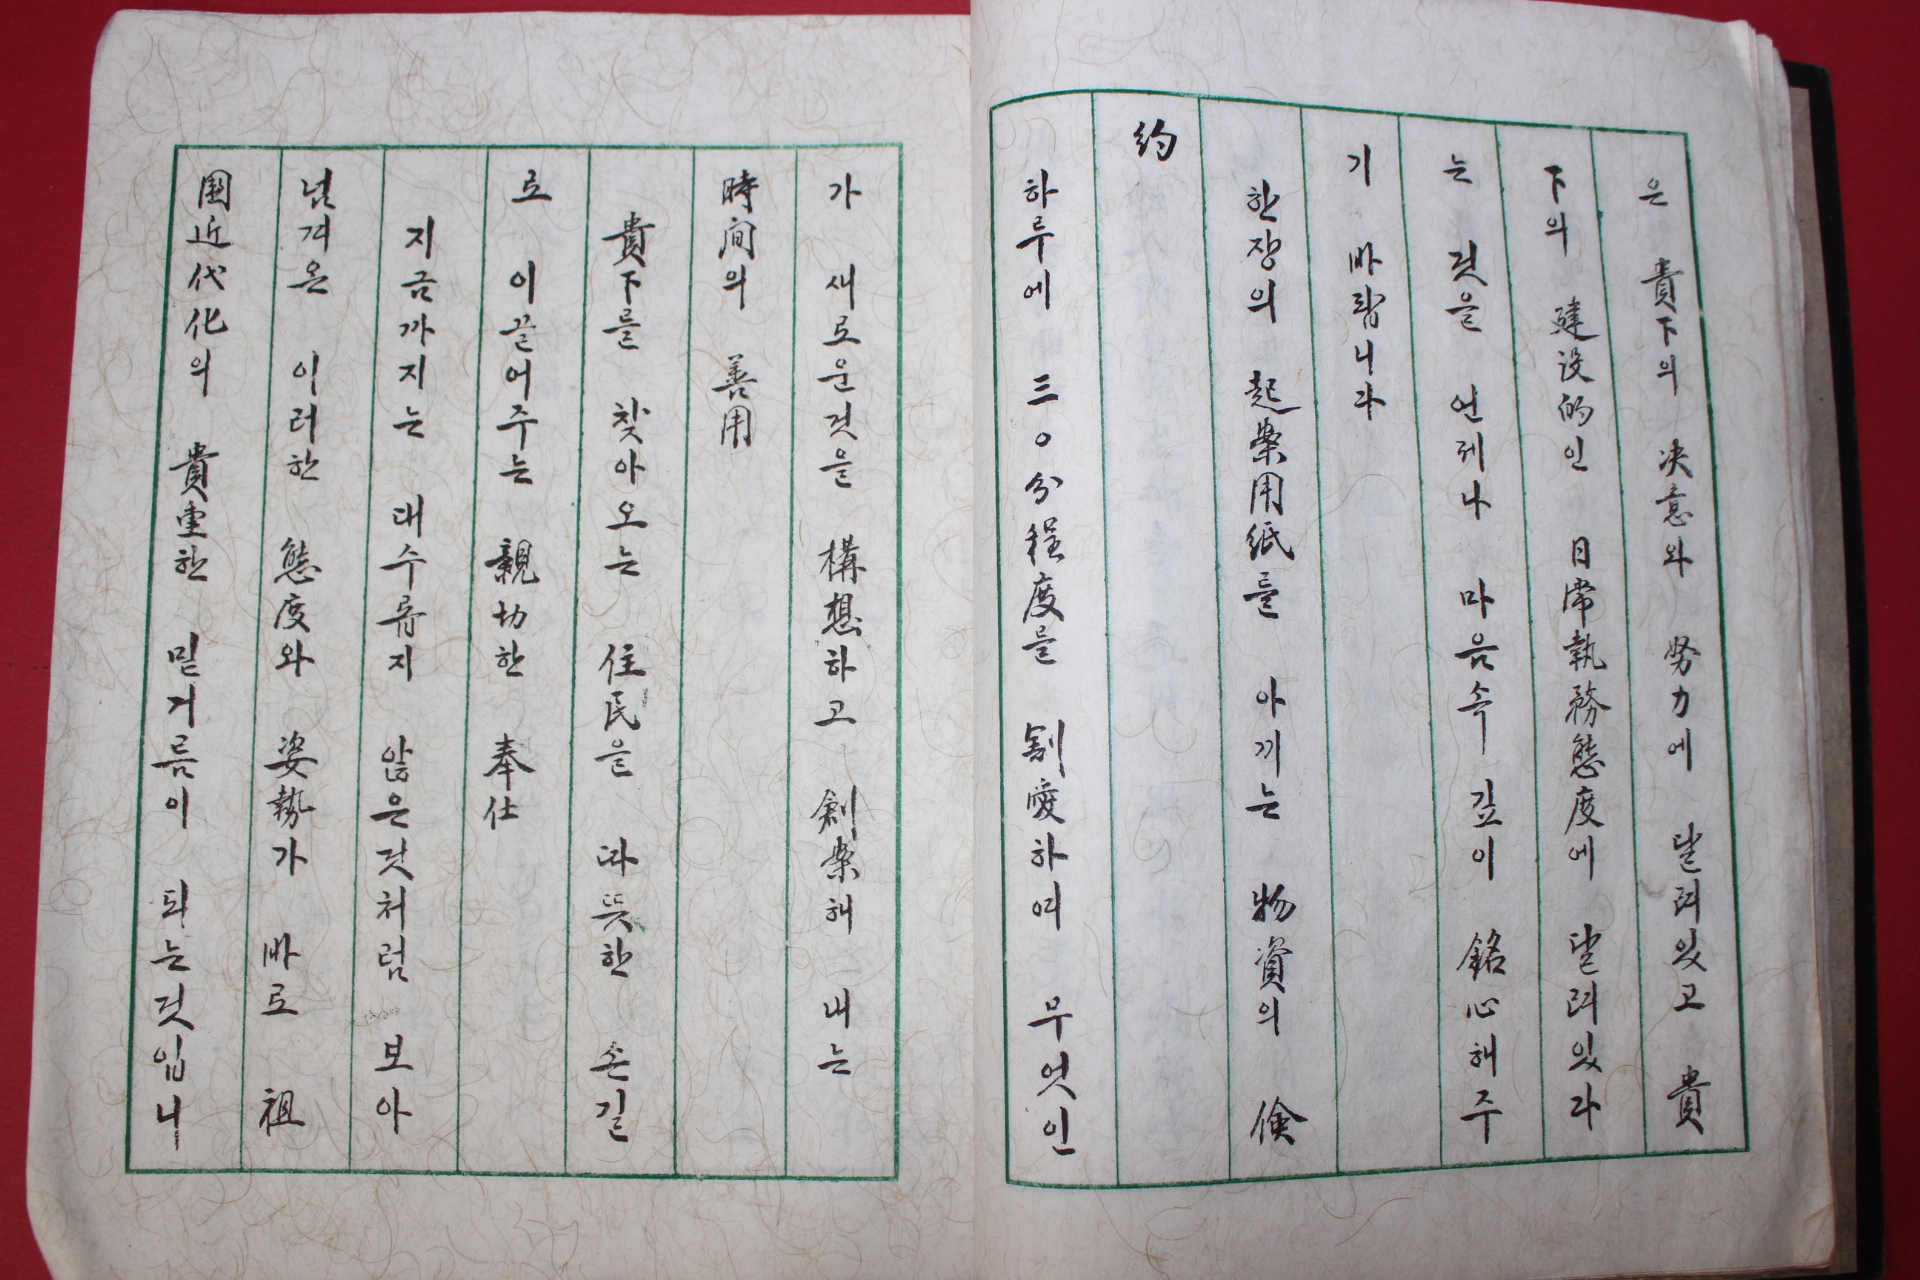 은 貴下의 決意와 努力에 달려있고 貴
下의 建設的인 日常執務態度에 달려있다
는 것을 언제나 마음속 깊이 銘心해주
기 바랍니다
한장의 起案用紙를 아끼는 物資의 儉
約
하루에 三〇分程度를 割愛하여 무엇인
가 새로운것을 構想하고 創案해 내는
時间의 善用
貴下를 찾아오는 住民을 따뜻한 손길
로 이끌어주는 親切한 奉仕
지금까지는 대수롭지 않은것처럼 보아
넘겨온 이러한 態度와 姿勢가 바로 祖
國近代化의 貴重한 밑거름이 되는것입니